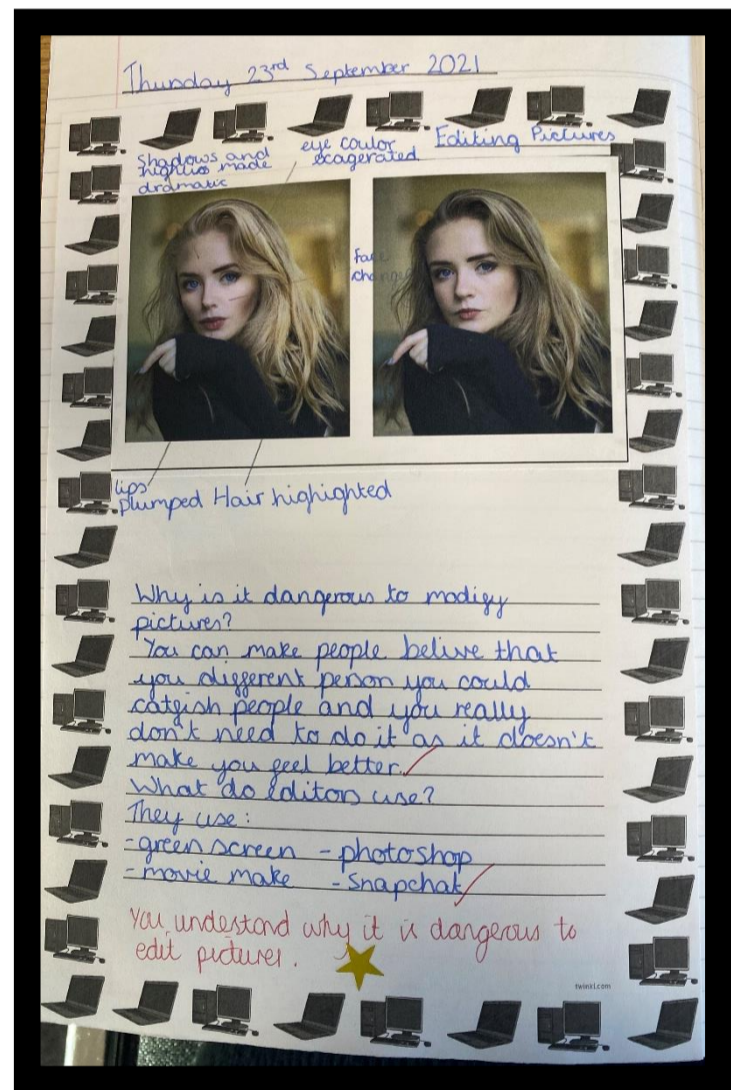 Thursday 23rd September 2021
Shadows and
highlits made
dramatic
eye coulor
exagerated
Editing Pictures
Face
changed
lips
plumped
Hair highighted
Why is it dangerous to modify
pictures?
You can make people belive that
you different person you could
catfish people and you really
don't need to do it as it doesn't
make you feel better.
What do editors use?
They use:
-green screen -photoshop
-movie make -Snapchat
You understand why it is dangerous to
edit pictures.
twinkl.com